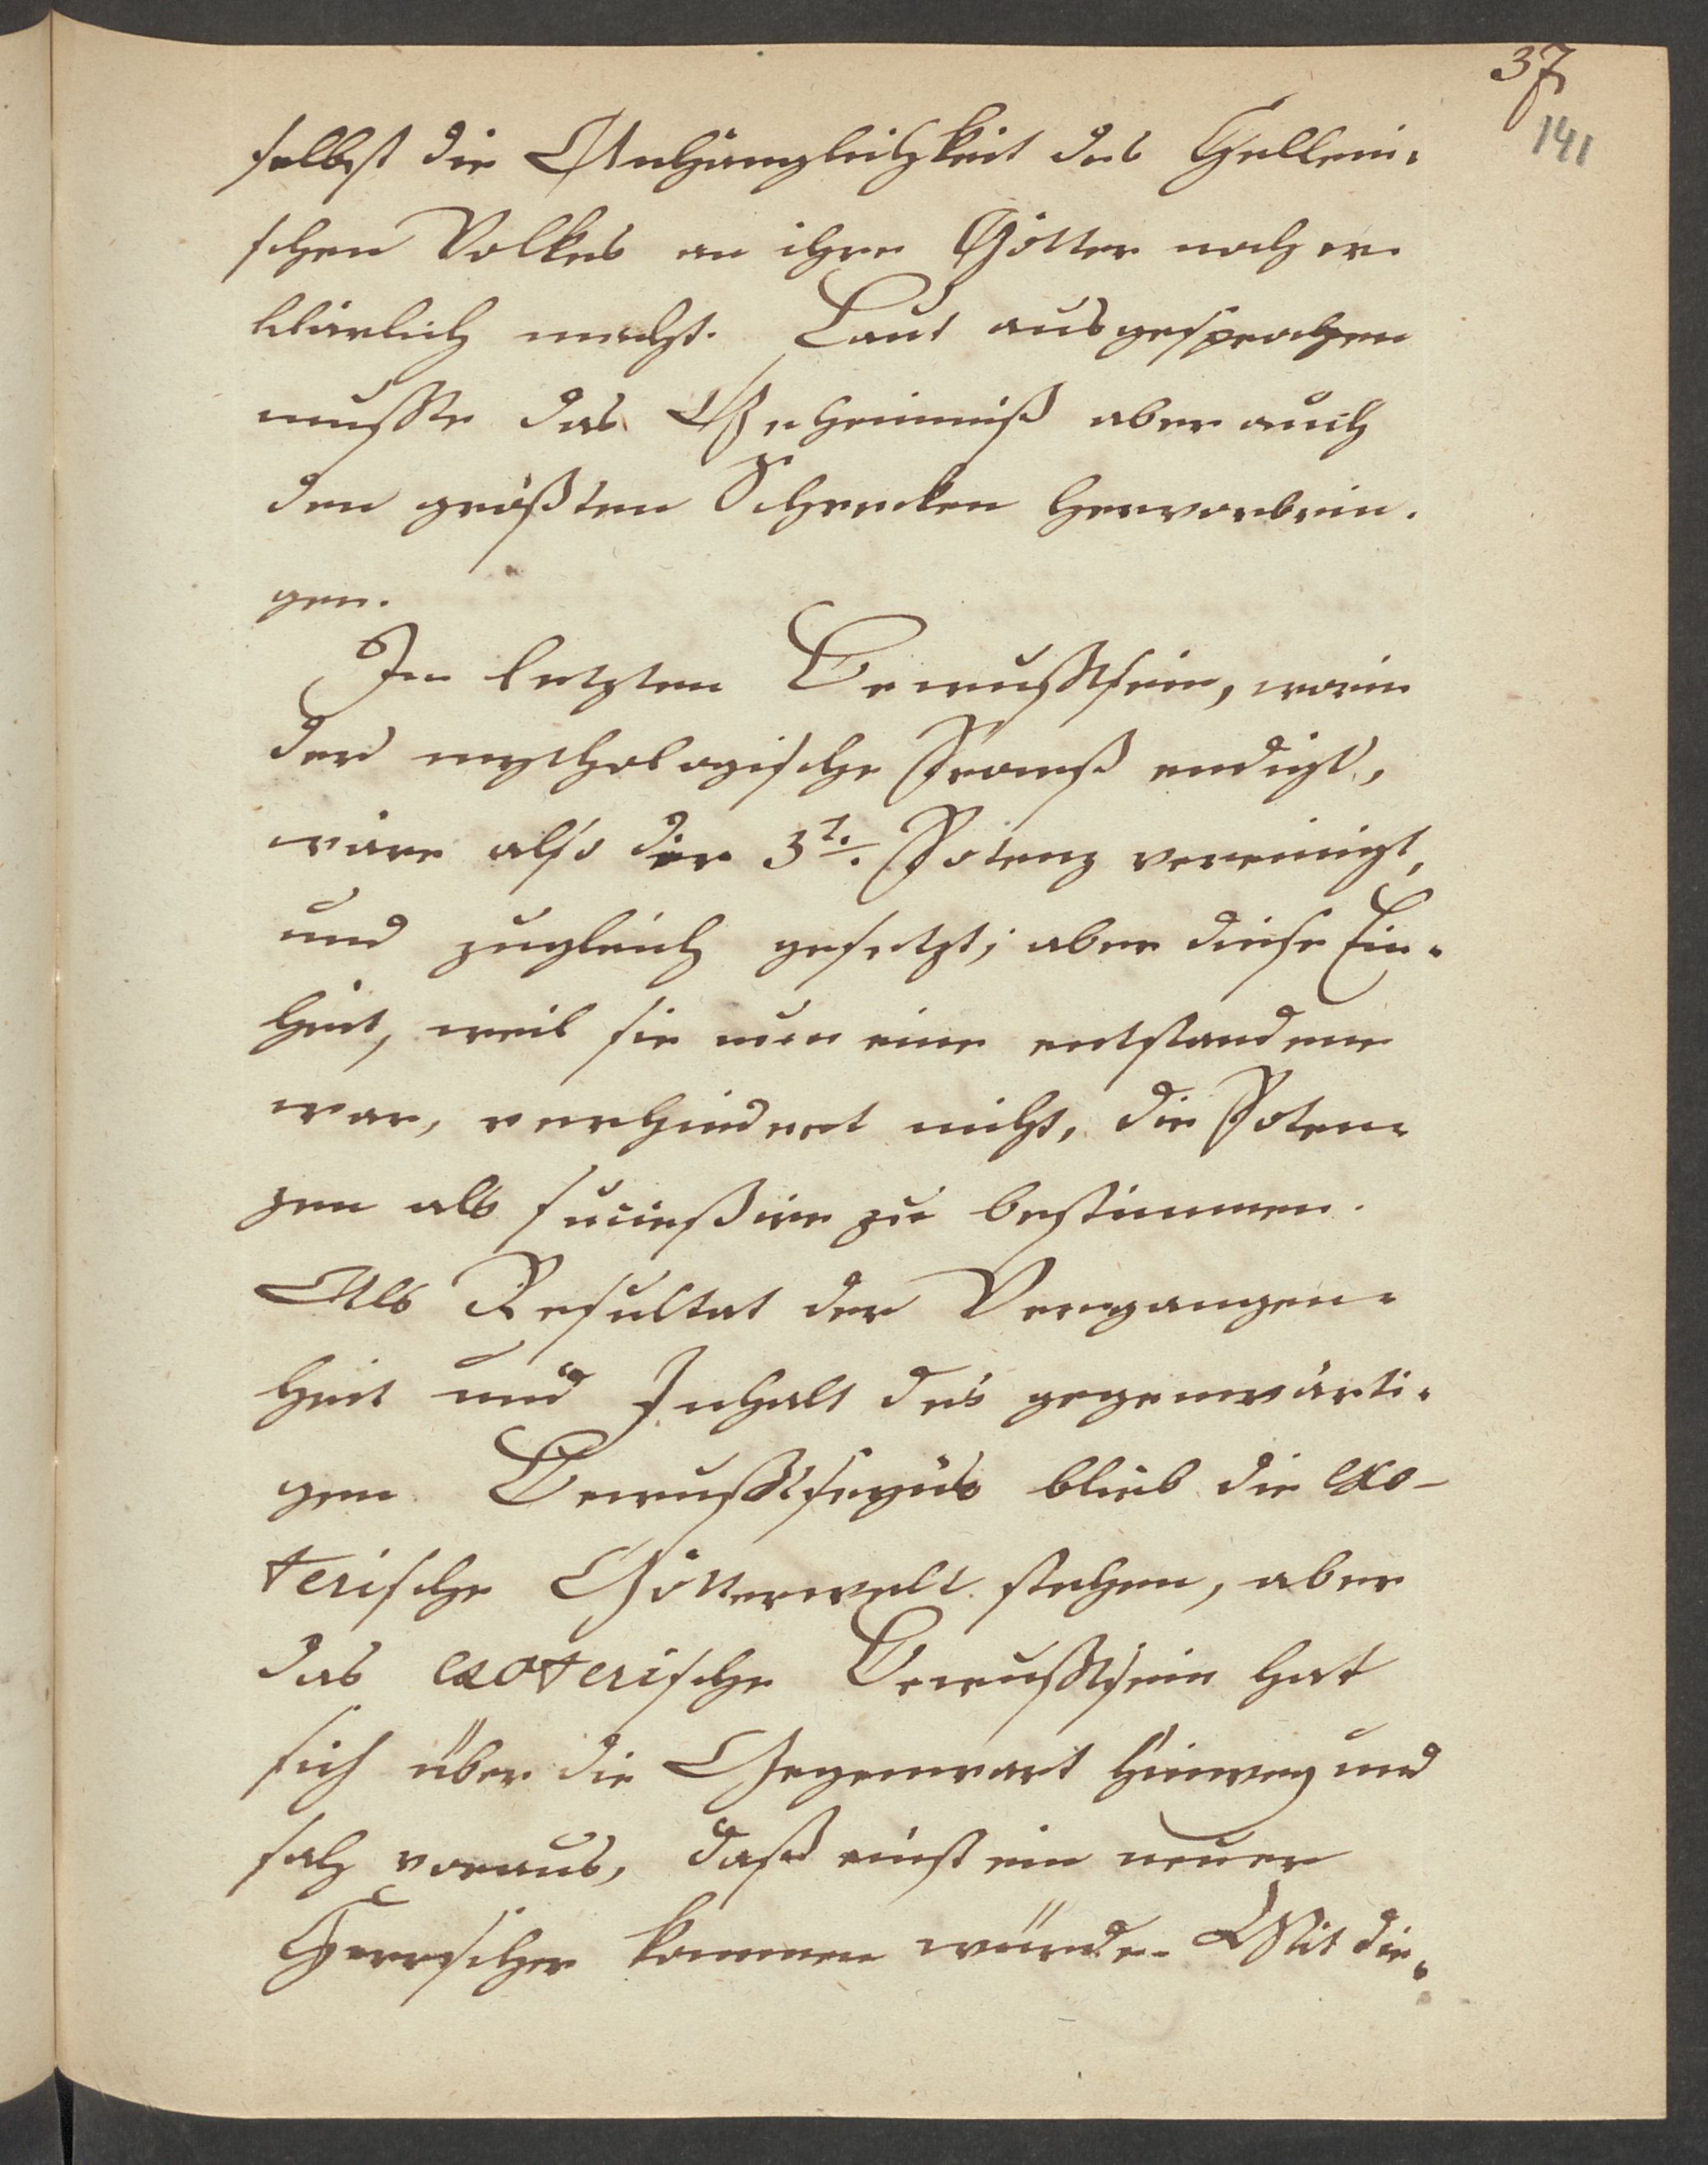 37
141
selbst die Anhänglichkeit des Hellени-
schen Volkes an ihre Götter noch er-
klärlich macht. Laut ausgesprochen
mußte das Geheimniß aber auch
den größten Schrecken hervorbrin-
gen.
Im letzten Bewußtsein, worin
der mythologische Proceß endigt,
wäre also die 3t. Potenz vereinigt,
und zugleich gesetzt; aber diese Ein-
heit, weil sie nur eine entstandene
war, verhindert nicht, die Poten-
zen als succeßive zu bestimmen.
Als Resultat der Vergangen-
heit und Inhalt des gegenwärti-
gen Bewußtseyns blieb die exo-
terische Götterwelt stehen, aber
das esoterische Bewußtsein hat
sich über die Gegenwart hinweg und
sah voraus, daß einst ein neuer
Herrscher kommen würde. Mit die-